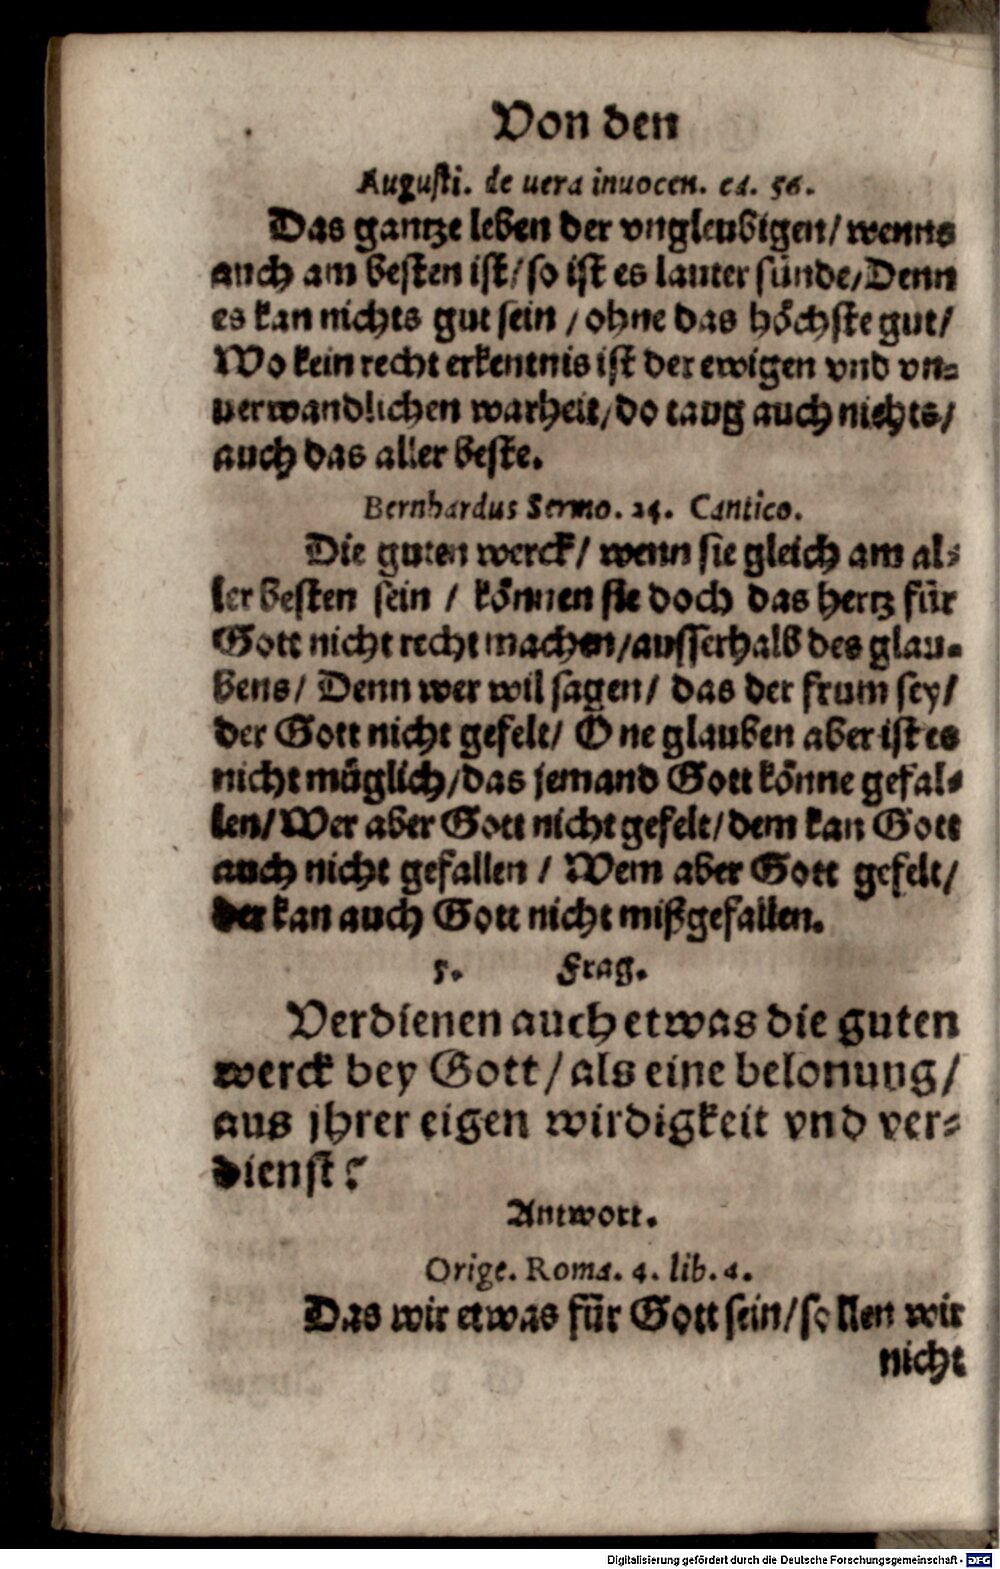 Von den
Augusti. de uera inuocen. ca. 56.
Das gantze leben der vngleubigen/ wenns
auch am besten ist/ so ist es lauter sünde/ Denn
es kan nichts gut sein / ohne das höchste gut/
Wo kein recht erkentnis ist der ewigen vnd vn-
uerwandlichen warheit/ do taug auch nichts/
auch das aller beste.
Bernhardus Sermo. 24. Cantico.
Die guten werck/ wenn sie gleich am al-
ler besten sein / können sie doch das hertz für
Gott nicht recht machen/ ausserhalb des glau-
bens/ Denn wer wil sagen/ das der frum sey/
der Gott nicht gefelt/ One glauben aber ist es
nicht müglich/ das jemand Gott könne gefal-
len/ Wer aber Gott nicht gefelt/ dem kan Gott
auch nicht gefallen / Wem aber Gott gefelt/
der kan auch Gott nicht mißgefallen.
5. Frag.
Verdienen auch etwas die guten
werck bey Gott/ als eine belonung/
aus jhrer eigen wirdigkeit vnd ver-
dienst?
Antwort.
Orige. Roma. 4. lib. 4.
Das wir etwas für Gott sein/ sollen wir
nicht
Digitalisierung gefördert durch die Deutsche Forschungsgemeinschaft - DFG